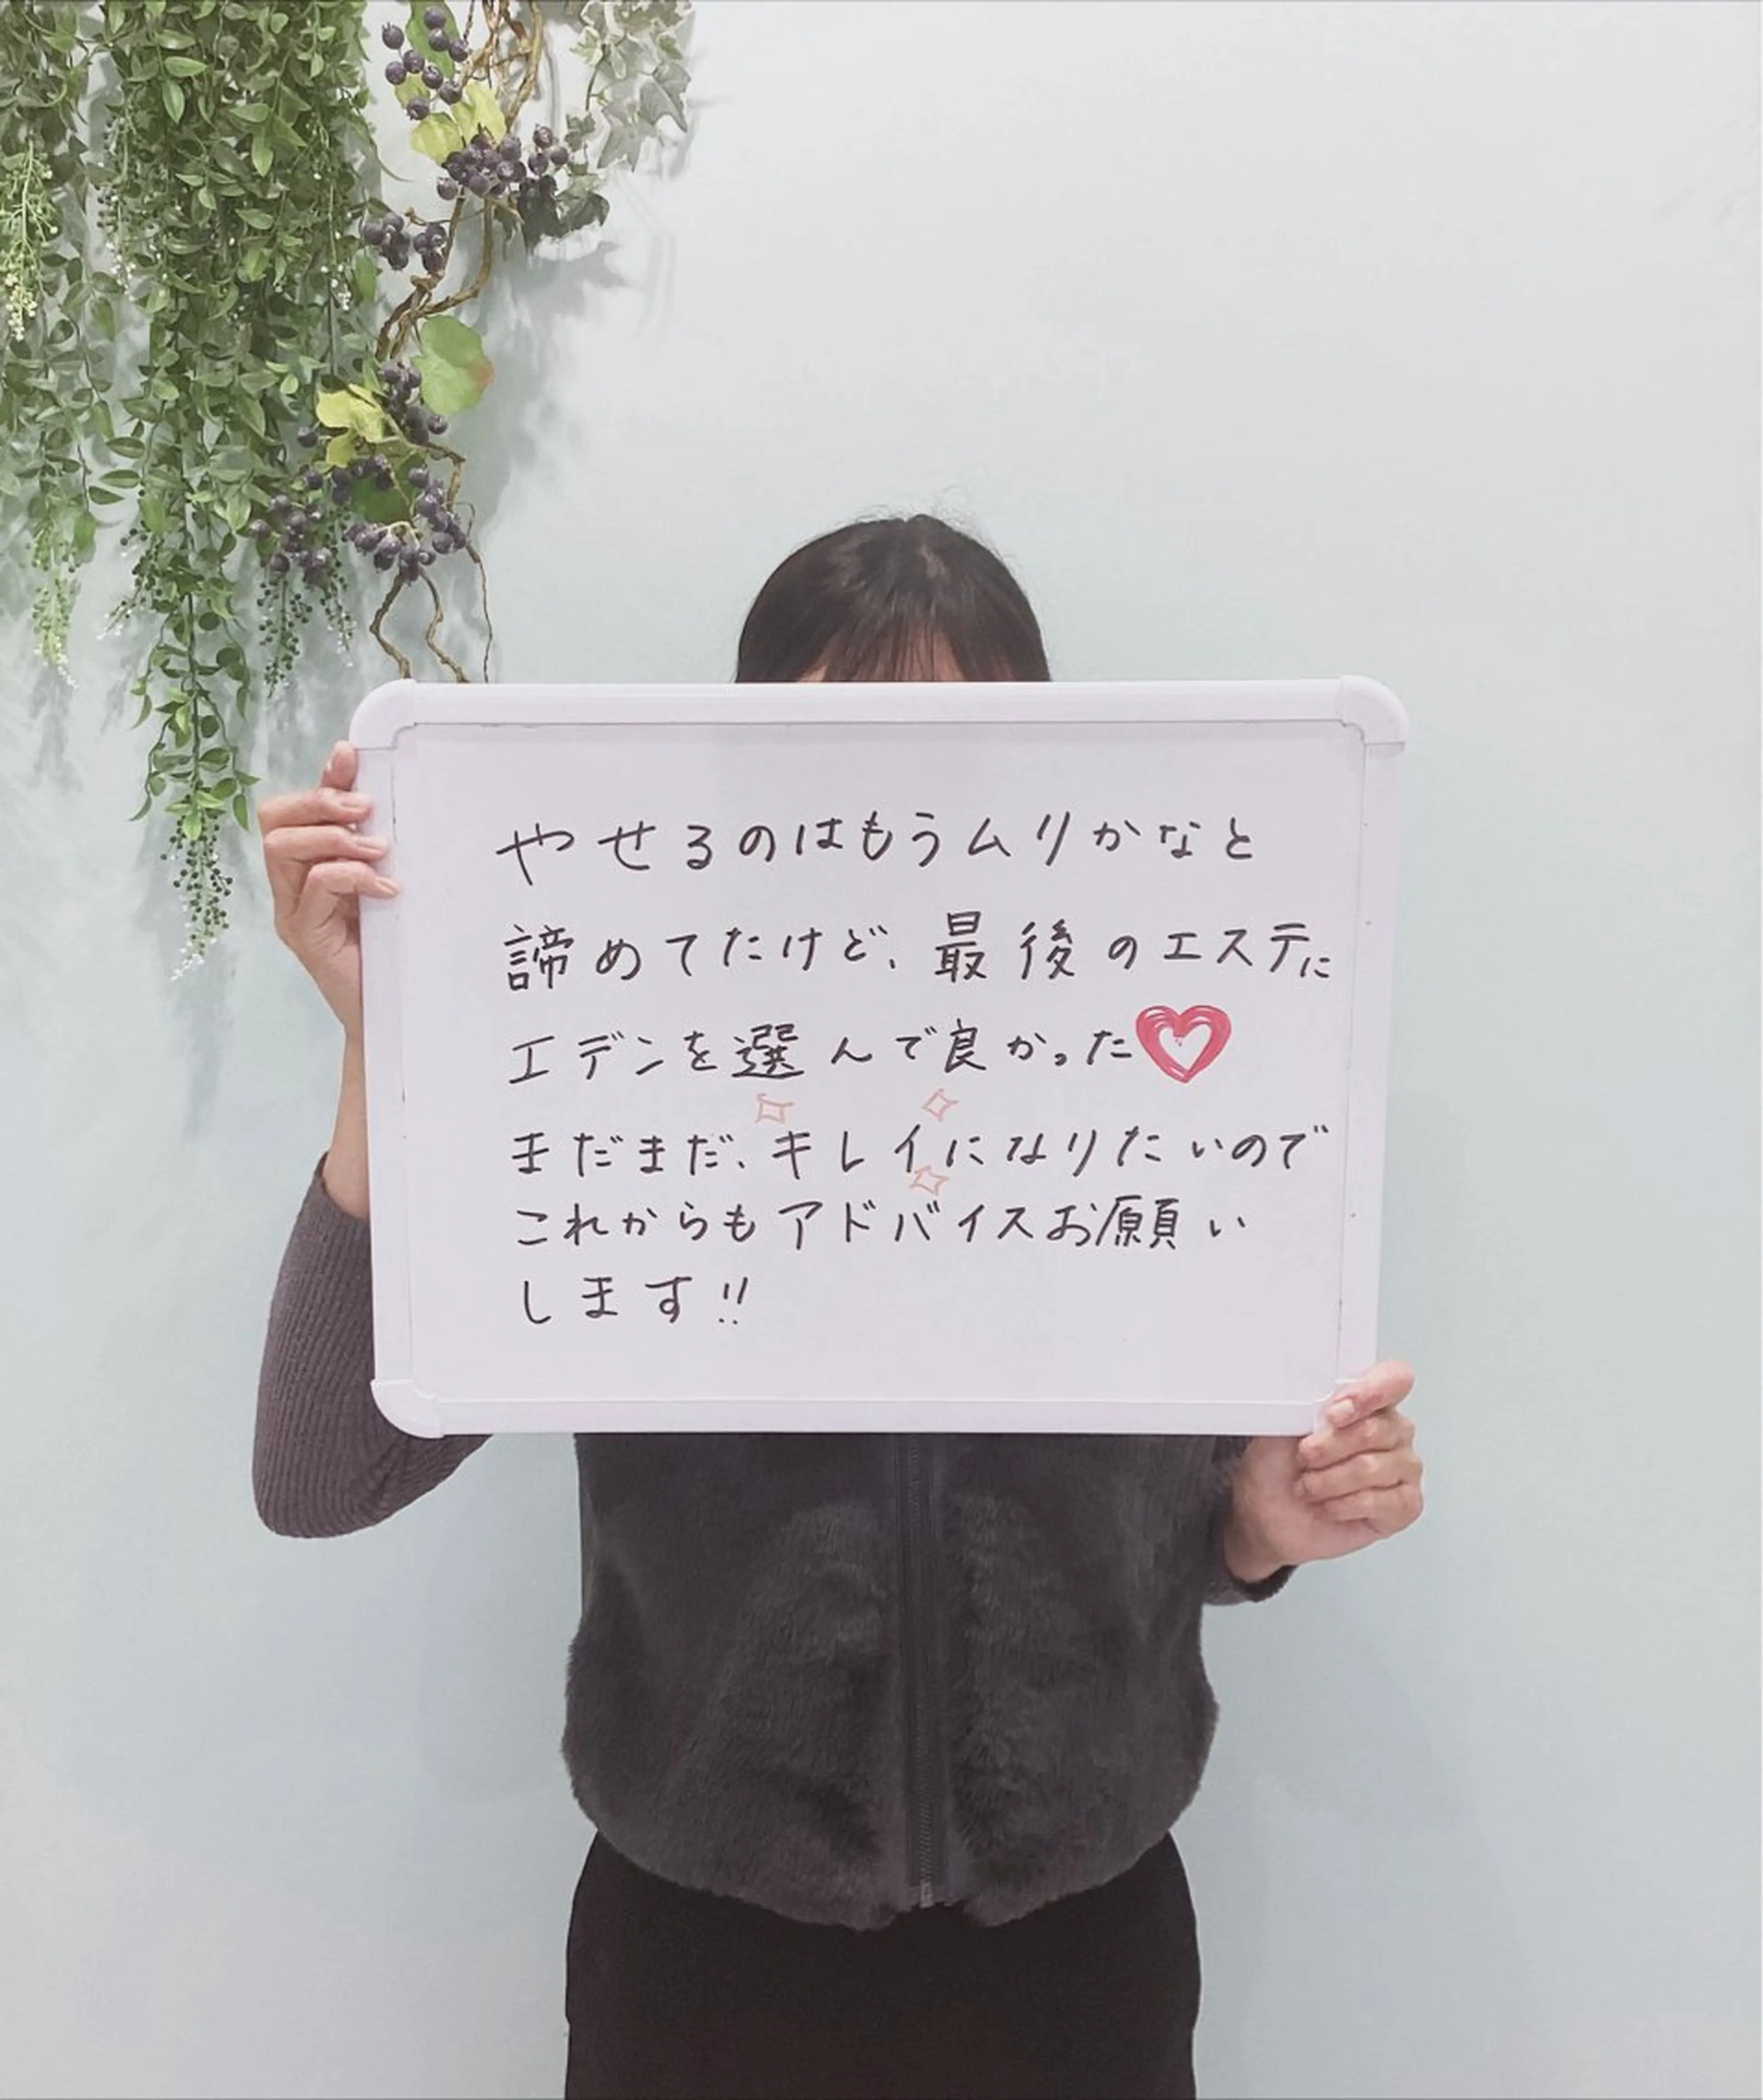 やせるのはもうムリかなと
諦めてたけど、最後のエステに
エデンを選んで良かった♡
まだまだ、キレイになりたいので
これからもアドバイスお願い
します!!